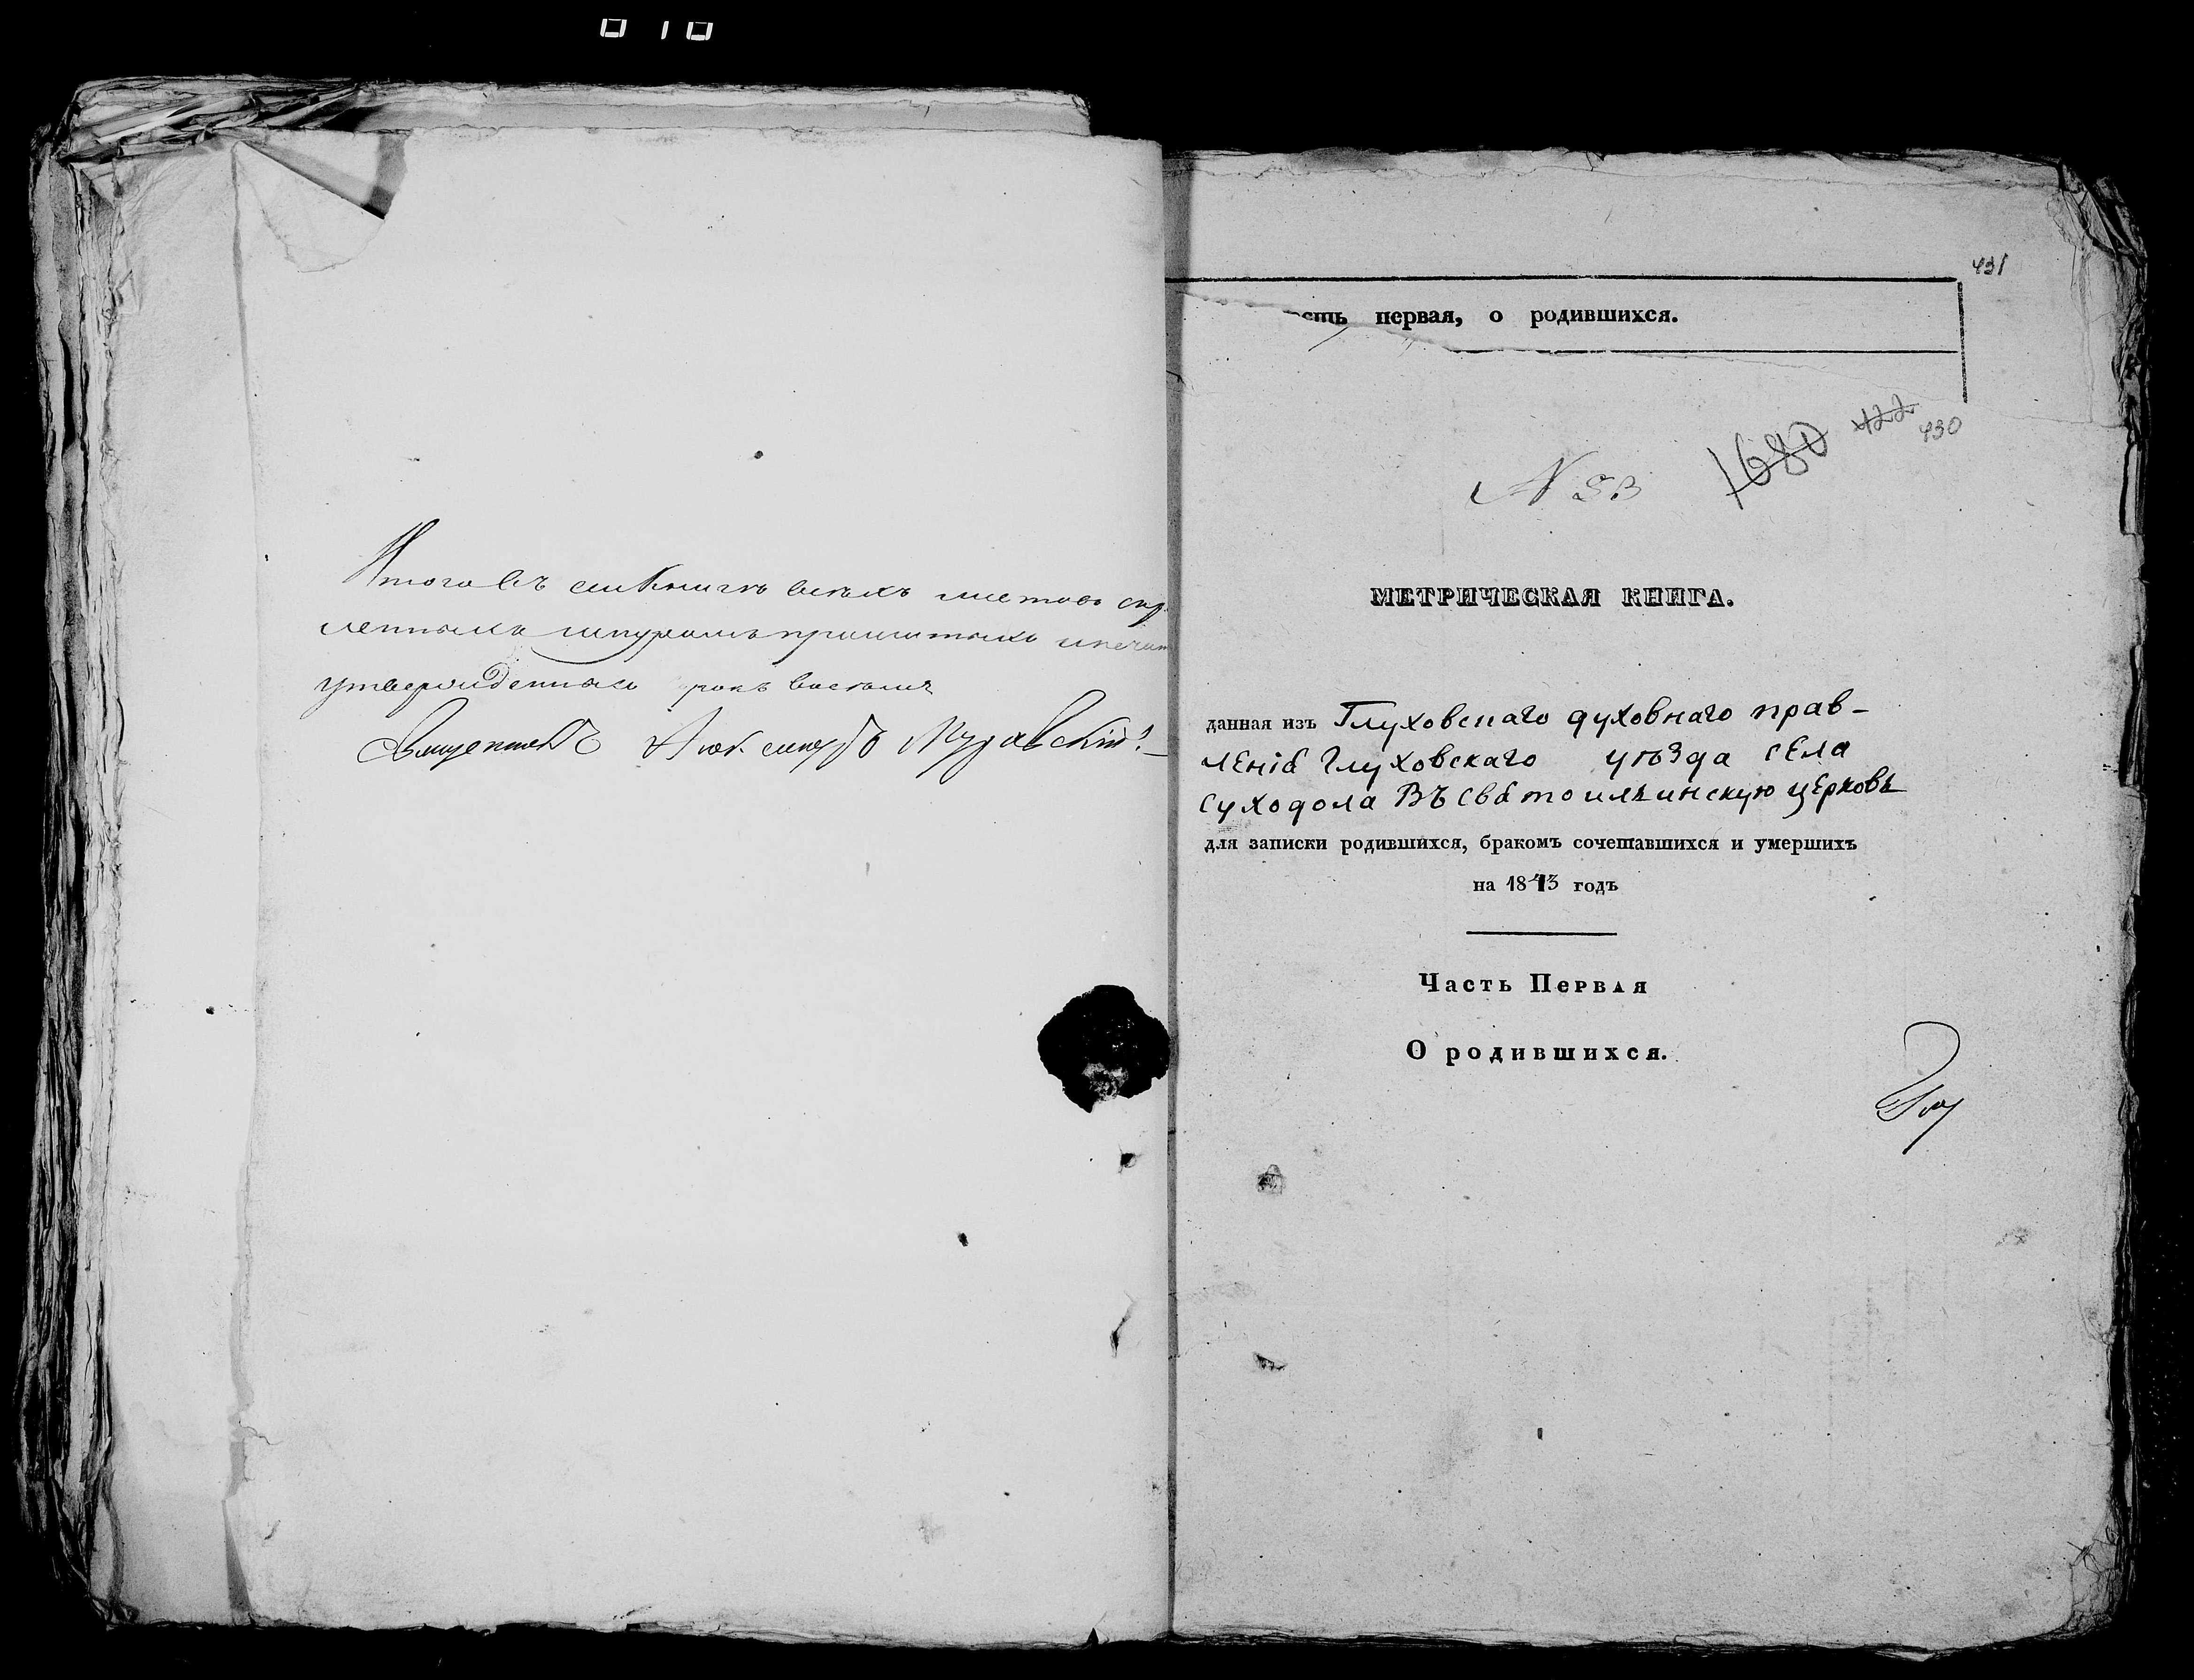 010
Итого въ сей Книгѣ всѣхъ листовъ скр
ленныхъ шнуромъ прошитыхъ и печат
утвержденныхъ
431
первая, о родившихся.
1680 422
430
N 53
МЕТРИЧЕСКАЯ КНИГА.
данная изъ Глуховскаго духовнаго прав-
ленія Глуховскаго уѣзда села
Суходола Въ Святоильинскую церковь
для записки родившихся, бракомъ сочетавшихся и умершихъ
на 1843 годъ
Часть Первая
О родившихся.